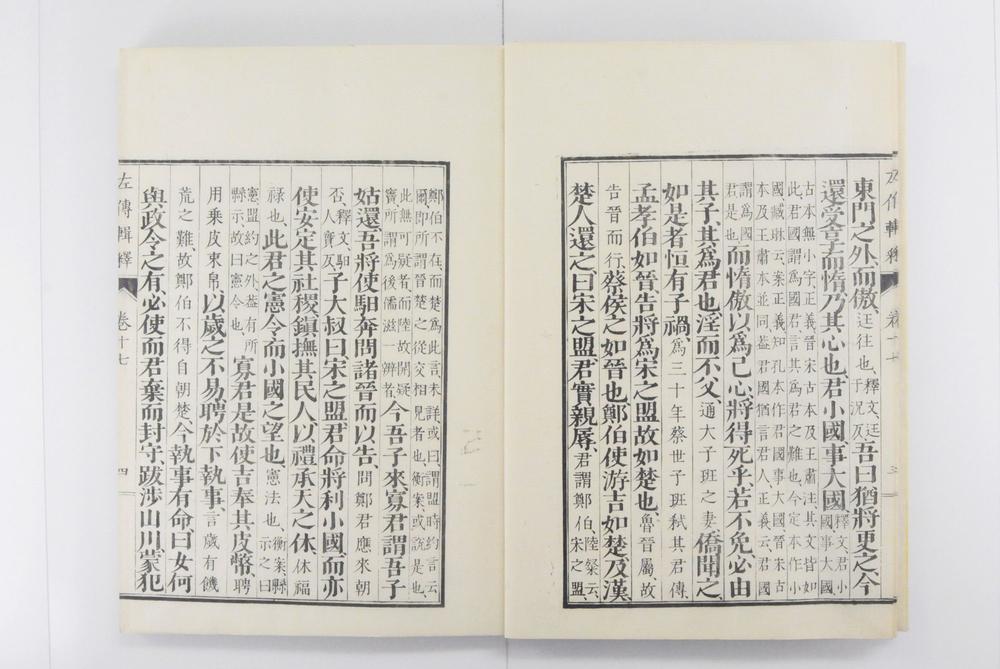 東門之外而傲迋往也釋文迋于況反吾曰猶將更之今
還受享而惰乃其心也君小國事大國釋文君小國事大國
古本無小字正義晉宋古本及王肅注其文皆如此君國謂為國君言其為君之難也今定本作小
國臧琳云案正義知孔本作君國事大國晉宋古本及王肅本並同蓋君國猶言君人正義云君國
謂為國君是也而惰傲以為己心將得死乎若不免必由
其子其為君也淫而不父通大子班之妻僑聞之
如是者恒有子禍為三十年蔡世子班弒其君傳
孟孝伯如晉告將為宋之盟故如楚也魯晉屬故
告晉而行蔡侯之如晉也鄭伯使游吉如楚及漢
楚人還之曰宋之盟君實親辱君謂鄭伯陸粲云宋之盟
鄭伯不在而楚為此言未詳或曰謂盟時約言云爾即所謂晉楚之從交相見者也衡案或說是也
此無可疑者而陸故鬧疑竇所謂為後儒滋一辨者今吾子來寡君謂吾子
姑還吾將使馹奔問諸晉而以告問鄭君應來朝
否釋文馹人實反子大叔曰宋之盟君命將利小國而亦
使安定其社稷鎮撫其民人以禮承天之休休福
祿也此君之憲令而小國之望也憲法也衡案縣示之曰
憲盟約之外蓋有所縣示故曰憲令也寡君是故使吉奉其皮幣聘
用乘皮束帛以歲之不易聘於下執事言歲有饑
荒之難故鄭伯不得自朝楚今執事有命曰女何
與政令之有必使而君棄而封守跋涉山川蒙犯
左傳輯釋 卷十七 四